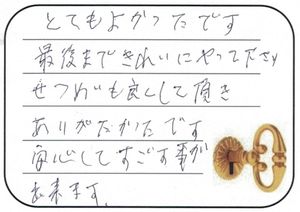 とてもよかったです
最後まできれいにやって下さり
せつめいも良くして頂き
ありがたかったです
安心してすごす事が
出来ます。